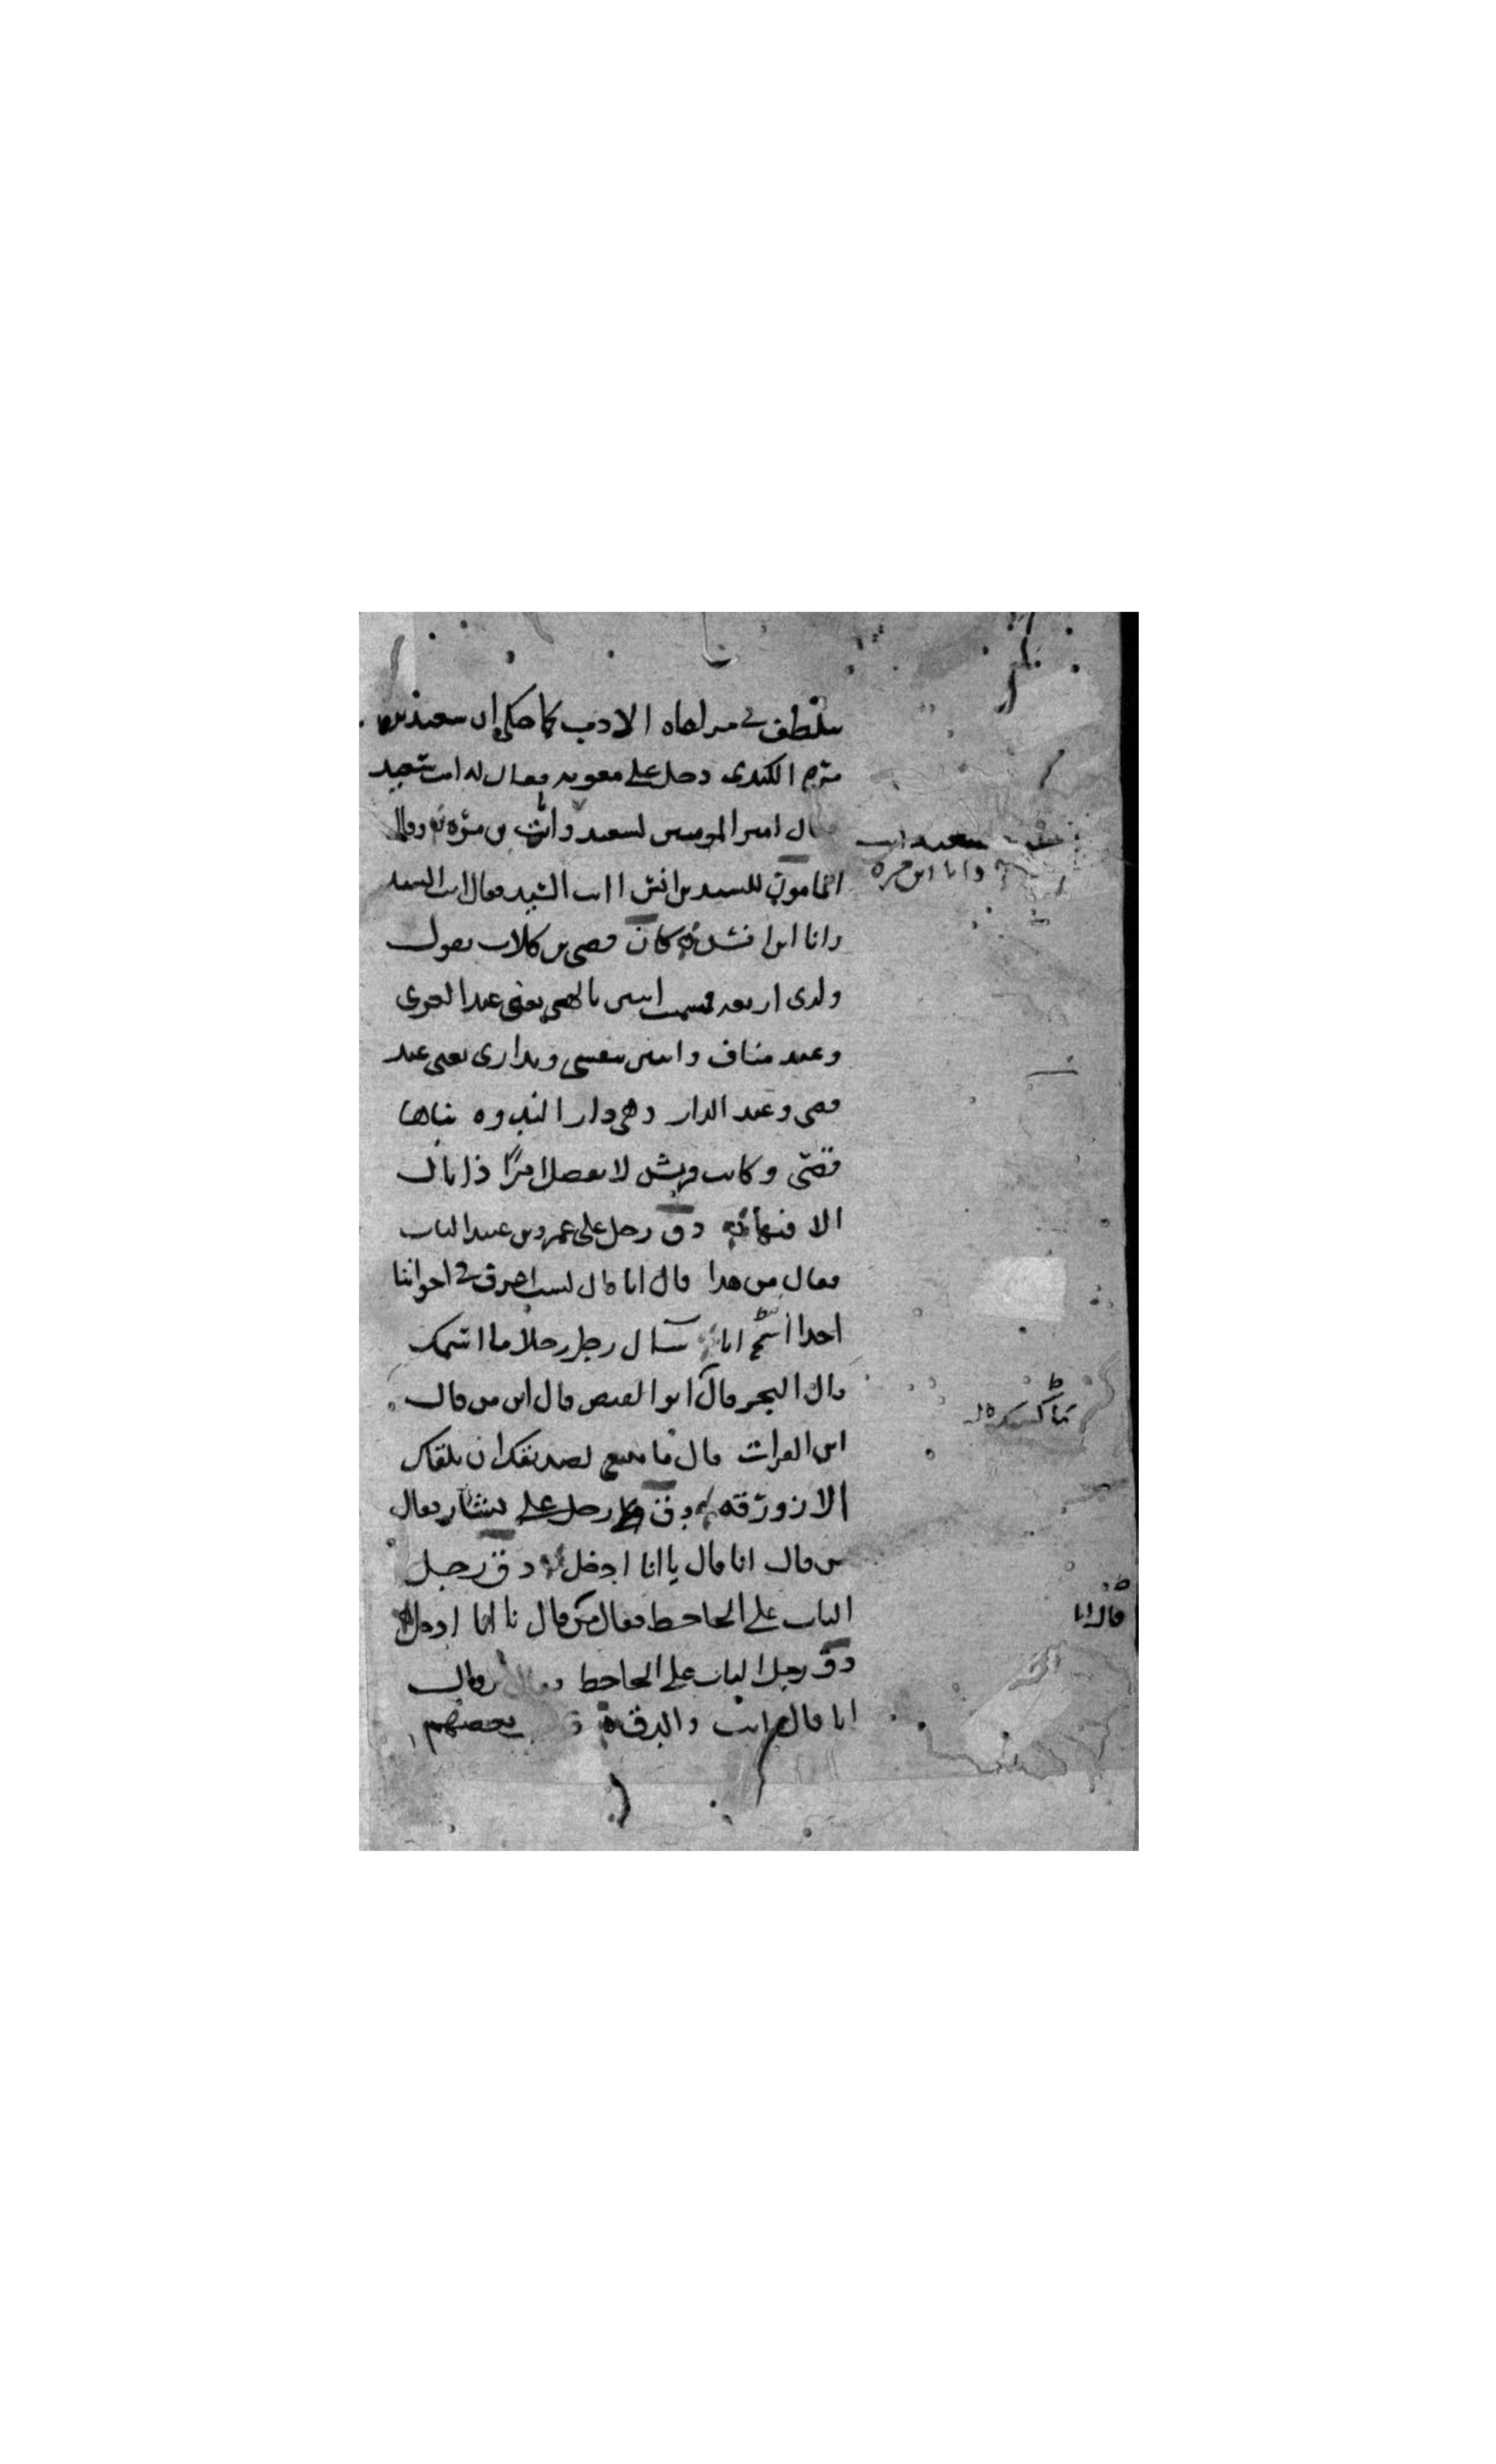 يتلطف في مراعاة الادب كما حكي ان سعيد بن
مرة الكندي دخل على معوية فقال له انت سعيد
قال امير المومنين السعيد وانا بن مرة وقال
المامون للسيد بن انس اانت السيد فقال انت السيد
وانا ابن انس كان قصي بن كلاب يقول
ولدي اربعة فسميت اثنين بالهي يعني عبد العزى
وعبد مناف واثنين بنفسي وبداري يعني عبد
قصي وعبد الدار وهي دار الندوة بناها
قصي وكانت قريش لا تفصل امرا ذا بال
الا فيها دق رجل على عمرو بن عبيد الباب
فقال من هذا قال انا قال لست اعرف في اخواننا
احدا اسمه انا سال رجل رجلا ما اسمك
قال البحر قال ابو الفيض قال ابن من قال
ابن الفرات قال ما ينبغي لصديقك ان يلقاك
الا في زورقه دق رجل على بشار فقال
من قال انا قال يا انا ادخل دق رجل
الباب على الجاحظ فقال من قال انا ادخل
دق رجل الباب على الجاحظ فقال من قال
انا قال انت والدق بعضهم
سعيد انت
وانا ابن مرة
قال انا